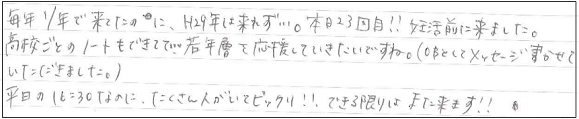 毎年1/年で来てたのに、H29年は来れず…。本日23回目!! 妊活前に来ました。
高校ごとのノートもできてて…若年層を応援していきたいですね。(OBとしてメッセージ書かせて
いただきました。)
平日の16:30なのに、たくさん人がいてビックリ!!。できる限りはまた来ます!!